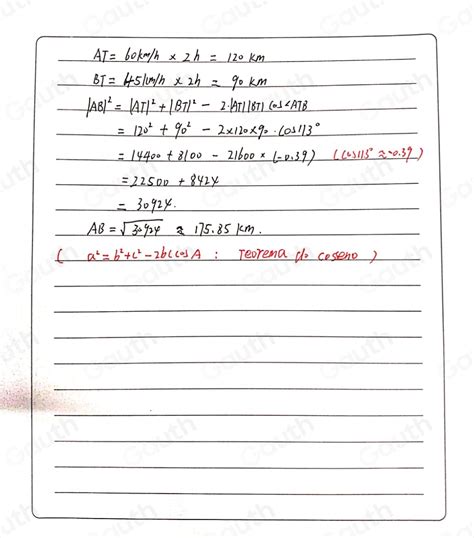 AT = 60km/h × 2h = 120 km
BT = 45km/h × 2h = 90 km
|AB|² = |AT|² + |BT|² - 2·|AT||BT| cos<ATB
= 120² + 90² - 2×120×90 · cos113°
= 14400 + 8100 - 21600 × (-0.39) (cos113° ≈ -0.39)
= 22500 + 8424
= 30924.
AB = √30924 ≈ 175.85 km.
( a² = b² + c² - 2bc cosA : Teorema do coseno )
Gauth